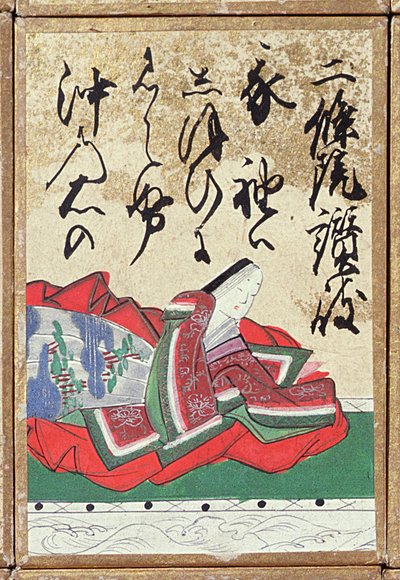 二條院讚岐
我袖は
しほひに
みえぬ
沖の石の